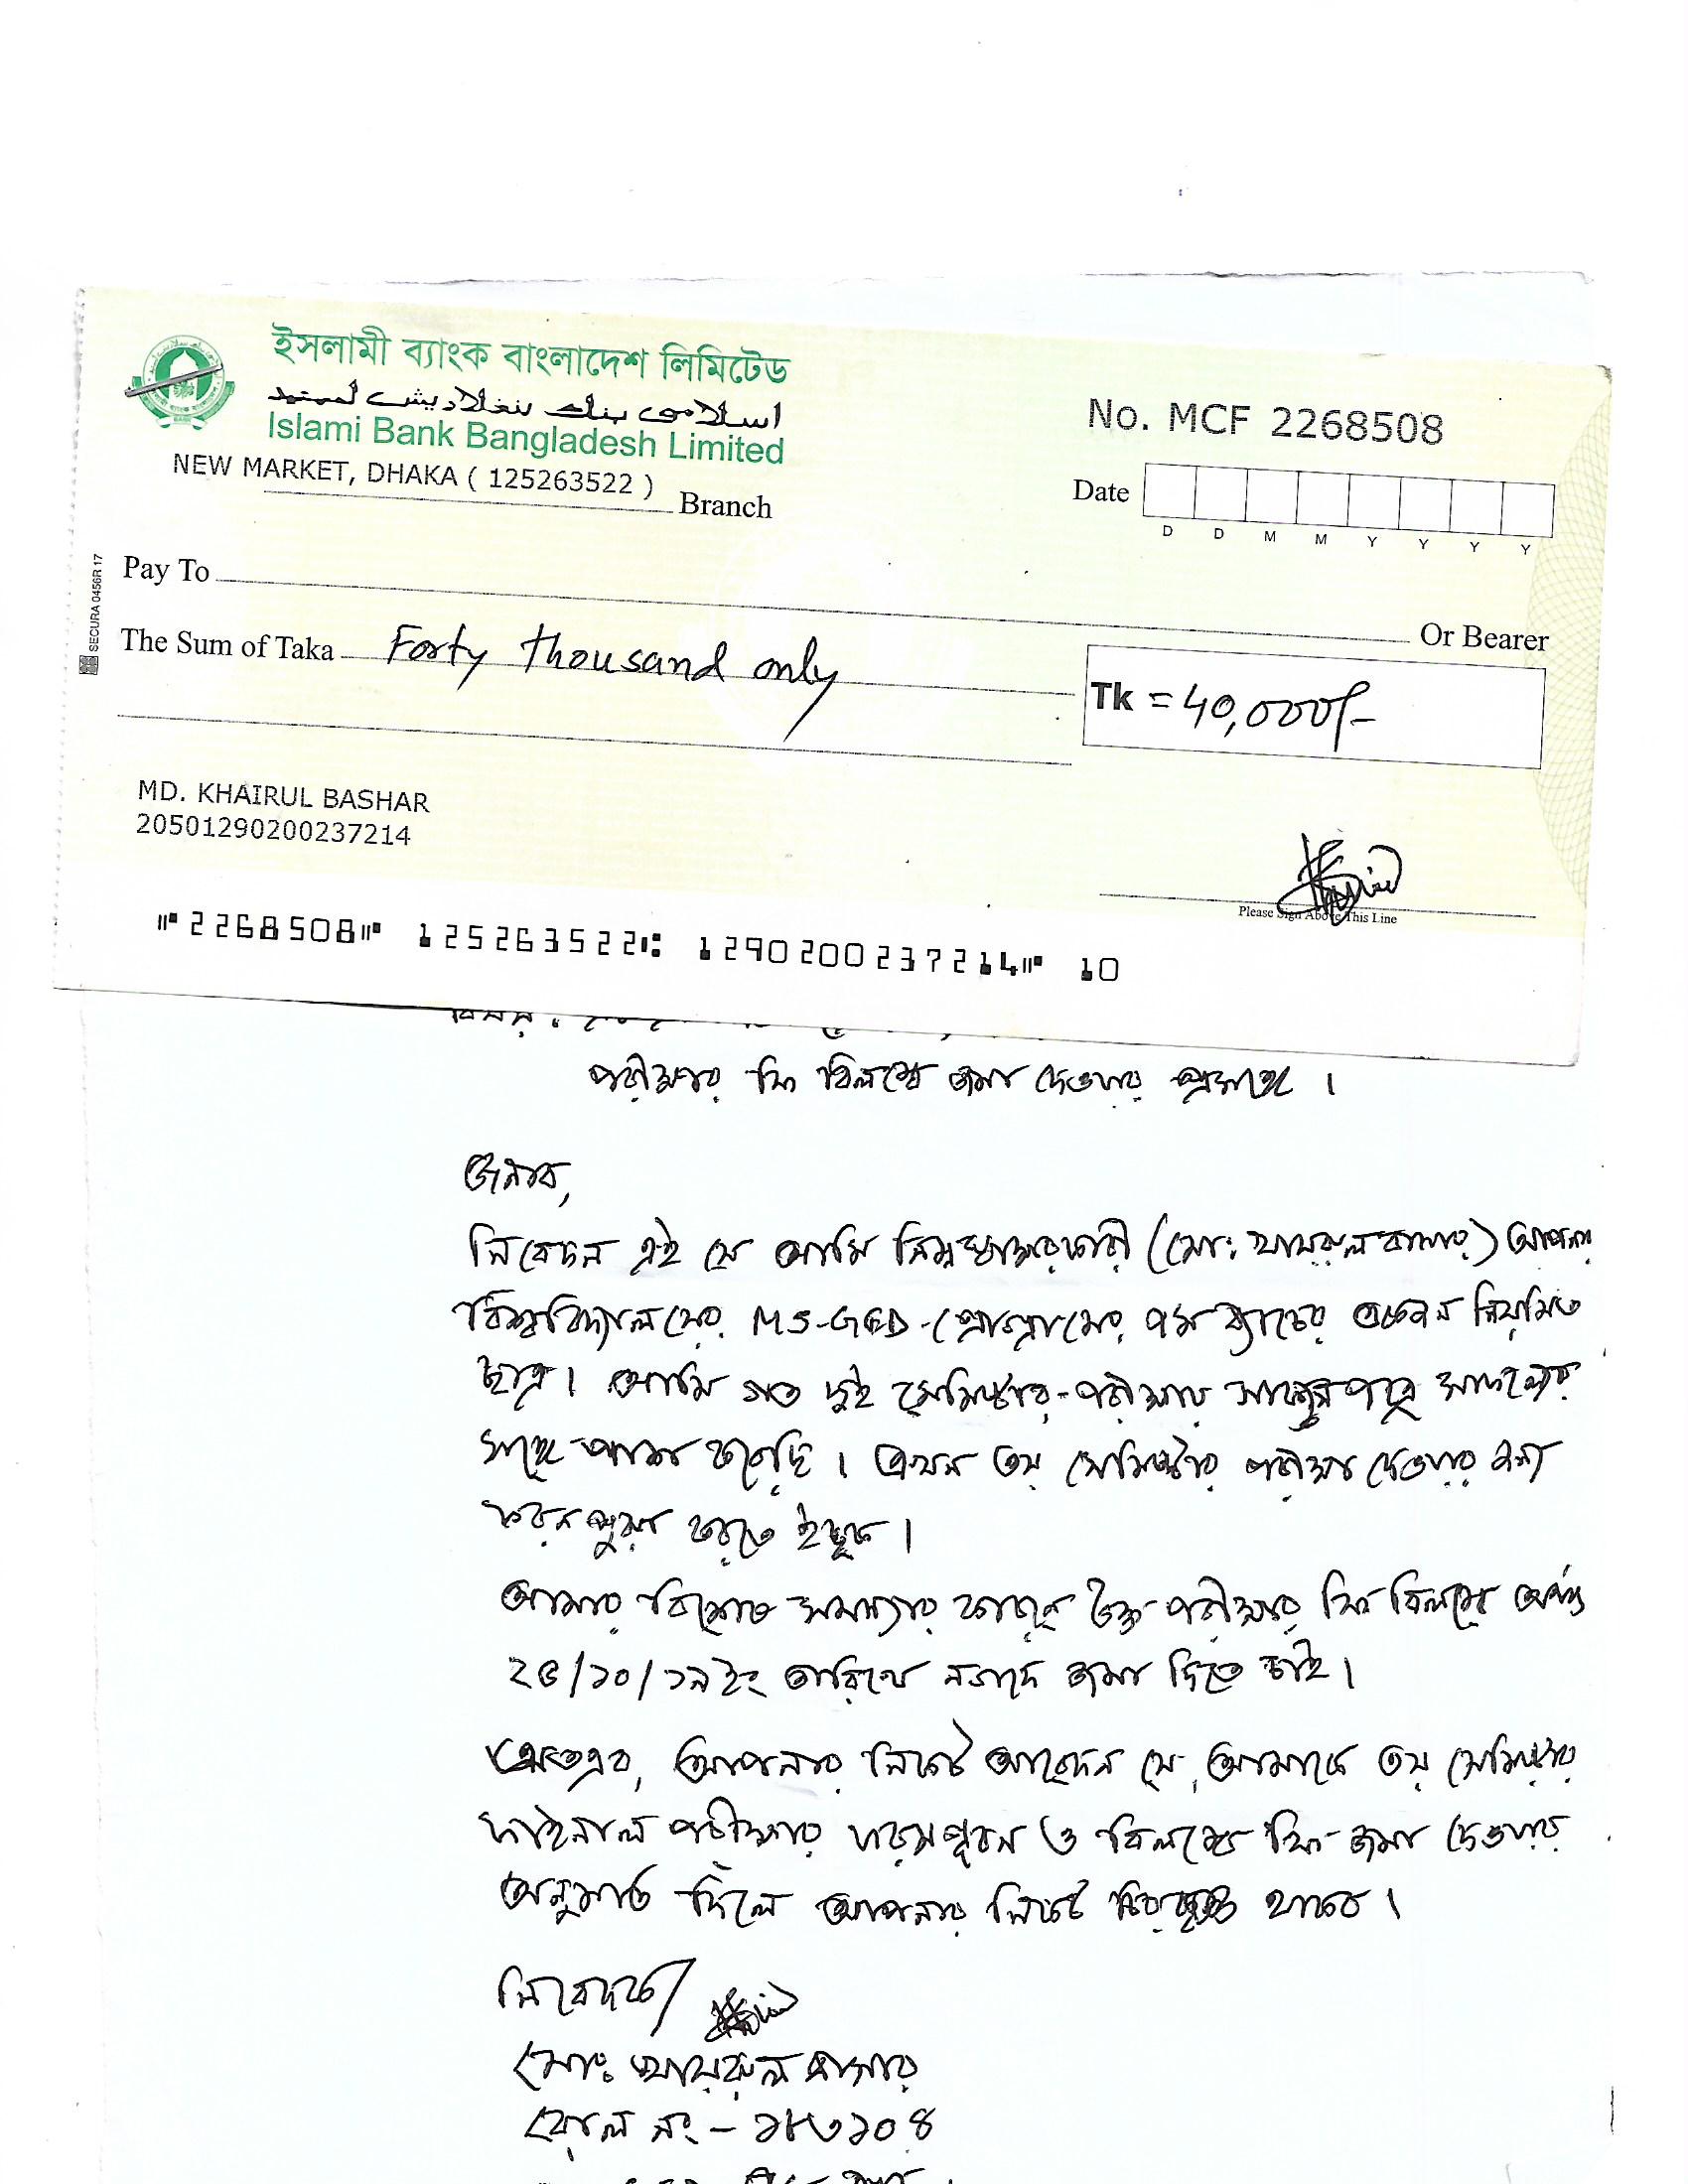 ইসলামী ব্যাংক বাংলাদেশ লিমিটেড
اسلامى بنك بنغلاديش لميتيد
Islami Bank Bangladesh Limited
NEW MARKET, DHAKA ( 125263522 ) Branch
No. MCF 2268508
Date
D D M M Y Y Y Y
SECURA 0456R 17
Pay To Or Bearer
The Sum of Taka Forty thousand only
Tk = 40,000/-
MD. KHAIRUL BASHAR
20501290200237214
Please Sign Above This Line
2268508 125263522 1290200237214 10
পরীক্ষার ফি বিলম্বে জমা দেওয়ার প্রসঙ্গে ।
জনাব,
নিবেদন এই যে আমি নিম্নস্বাক্ষরকারী (মোঃ খায়রুল বাশার) আপনার
বিশ্ববিদ্যালয়ের MS-GED-প্রোগ্রামের ৭ম ব্যাচের একজন নিয়মিত
ছাত্র। আমি গত দুই সেমিস্টার পরীক্ষায় সাফল্যের
সঙ্গে পাশ করেছি । এখন ৩য় সেমিস্টার পরীক্ষা দেওয়ার জন্য
ফরম পুরন করতে ইচ্ছুক ।
আমার বিশেষ সমস্যার কারনে উক্ত পরীক্ষার ফি বিলম্বে অর্থাৎ
২৫/১০/১৯ ইং তারিখে নগদে জমা দিতে চাই ।
অতএব, আপনার নিকট আবেদন যে, আমাকে ৩য় সেমিস্টার
ফাইনাল পরীক্ষার ফরম পুরন ও বিলম্বে ফি জমা দেওয়ার
অনুমতি দিলে আপনার নিকট থাকব ।
নিবেদক/
মোঃ খায়রুল বাশার
রোল নং - ১৮৩১০৪